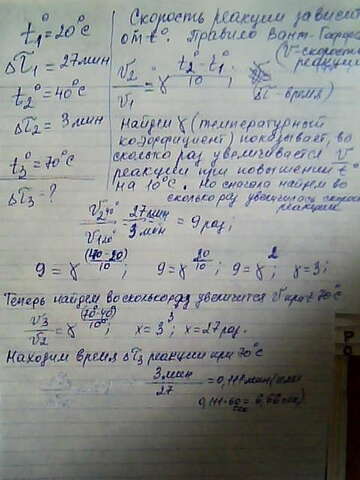 t₁° = 20°C
Δτ₁ = 27мин
t₂° = 40°C
Δτ₂ = 3мин
t₃° = 70°C
Δτ₃ = ?
Скорость реакции зависит
от t°. Правило Вант-Гоффа
(v-скорость реакции
v₂/v₁ = γ^((t₂°-t₁°)/10);
Δτ-время)
Найдём γ (температурный
коэффициент) показывает, во
сколько раз увеличивается v
реакции при повышении t°
на 10°C. Но сначала найдём во
сколько раз увеличилась скорость
реакции
v₂40°/v₁20° = 27мин/3мин = 9раз;
9 = γ^((40-20)/10); 9 = γ^(20/10); 9 = γ²; γ = 3;
Теперь найдём во сколько раз увеличится v при t 70°C
v₃/v₂ = γ^((70°-40°)/10°); x = 3³; x = 27раз.
Находим время Δτ₃ реакции при 70°C
3мин/27 = 0,111мин(
0,111·60сек = 6,66сек)